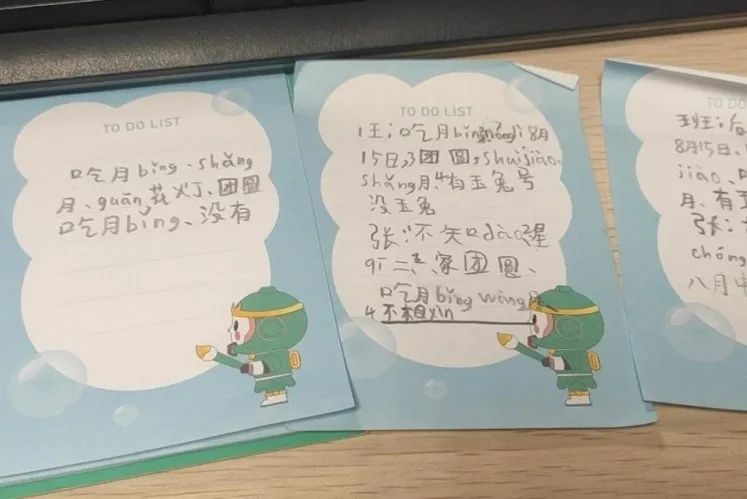 TO DO LIST
吃月bǐng、shǎng
月、guān花灯、团圆
吃月bǐng、没有
TO DO LIST
1王:吃月bǐng nóngli 8月
15日,团圆,shuìjiào、
shǎng月、有玉兔号
没玉兔
张:不知dào
二、家团圆、
吃月bǐng wàng
不相xìn
TO DO
班王:
8月15日、
jiào、
月、有玉
张:
chóng
八月中